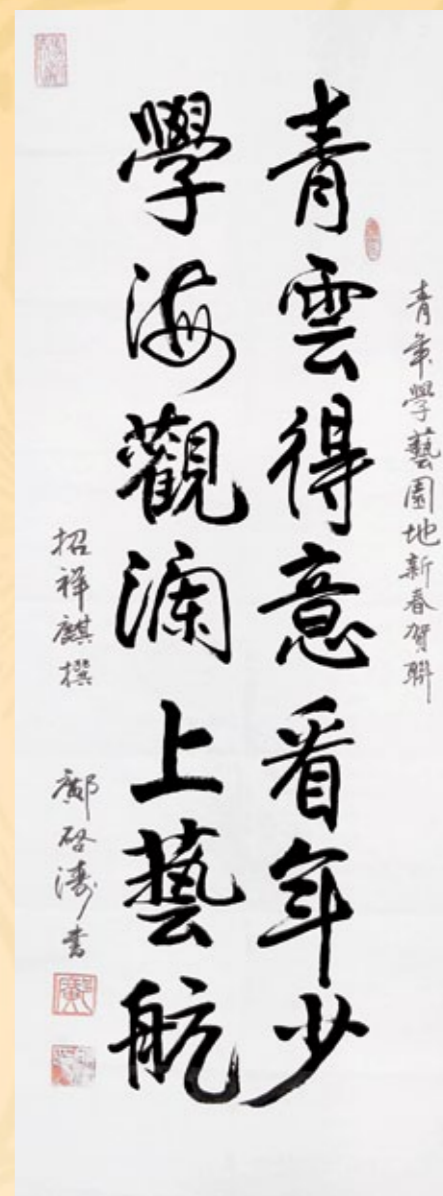 青年學藝園地新春賀聯
青雲得意看年少
學海觀瀾上藝航
招祥麒撰
鄺啓濤書